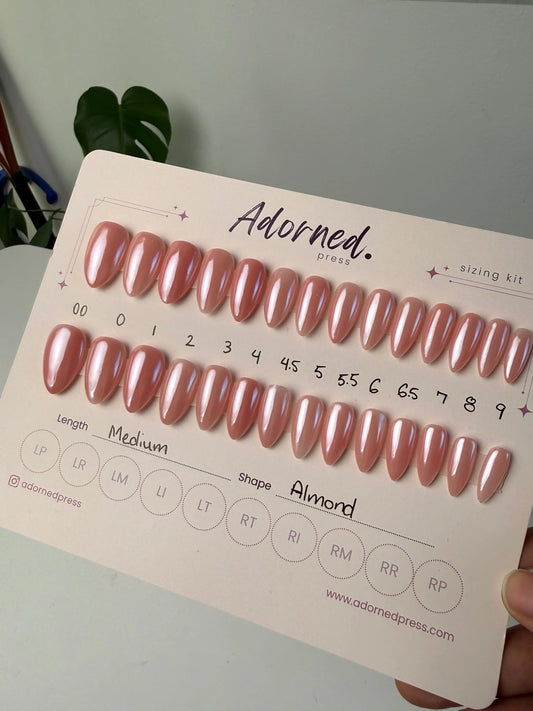 Adorned.
press
sizing kit
00 0 1 2 3 4 4.5 5 5.5 6 6.5 7 8 9
Length Medium Shape Almond
LP LR LM LI LT RT RI RM RR RP
adornedpress
www.adornedpress.com